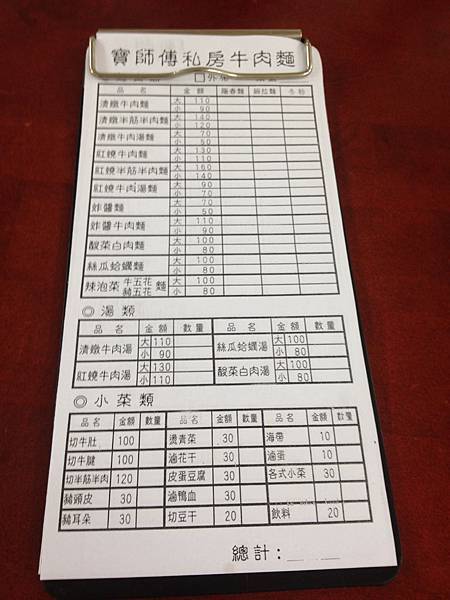 寶師傅私房牛肉麵
□外帶
品名 金額 陽春麵 細拉麵 冬粉
清燉牛肉麵 大 110
小 90
清燉半筋半肉麵 大 140
小 120
清燉牛肉湯麵 大 70
小 50
紅燒牛肉麵 大 130
小 110
紅燒半筋半肉麵 大 160
小 140
紅燒牛肉湯麵 大 90
小 70
炸醬麵 大 70
小 50
炸醬牛肉麵 大 110
小 90
酸菜白肉麵 大 100
小 80
絲瓜蛤蠣麵 大 100
小 80
辣泡菜 牛五花 豬五花 麵 大 100
小 80
◎ 湯類
品名 金額 數量 品名 金額 數量
清燉牛肉湯 大 110 絲瓜蛤蠣湯 大 100
小 90 小 80
紅燒牛肉湯 大 130 酸菜白肉湯 大 100
小 110 小 80
◎ 小菜類
品名 金額 數量 品名 金額 數量 品名 金額 數量
切牛肚 100 燙青菜 30 海帶 10
切牛腱 100 滷花干 30 滷蛋 10
切半筋半肉 120 皮蛋豆腐 30 各式小菜 30
豬頭皮 30 滷鴨血 30
豬耳朵 30 切豆干 20 飲料 20
總計：